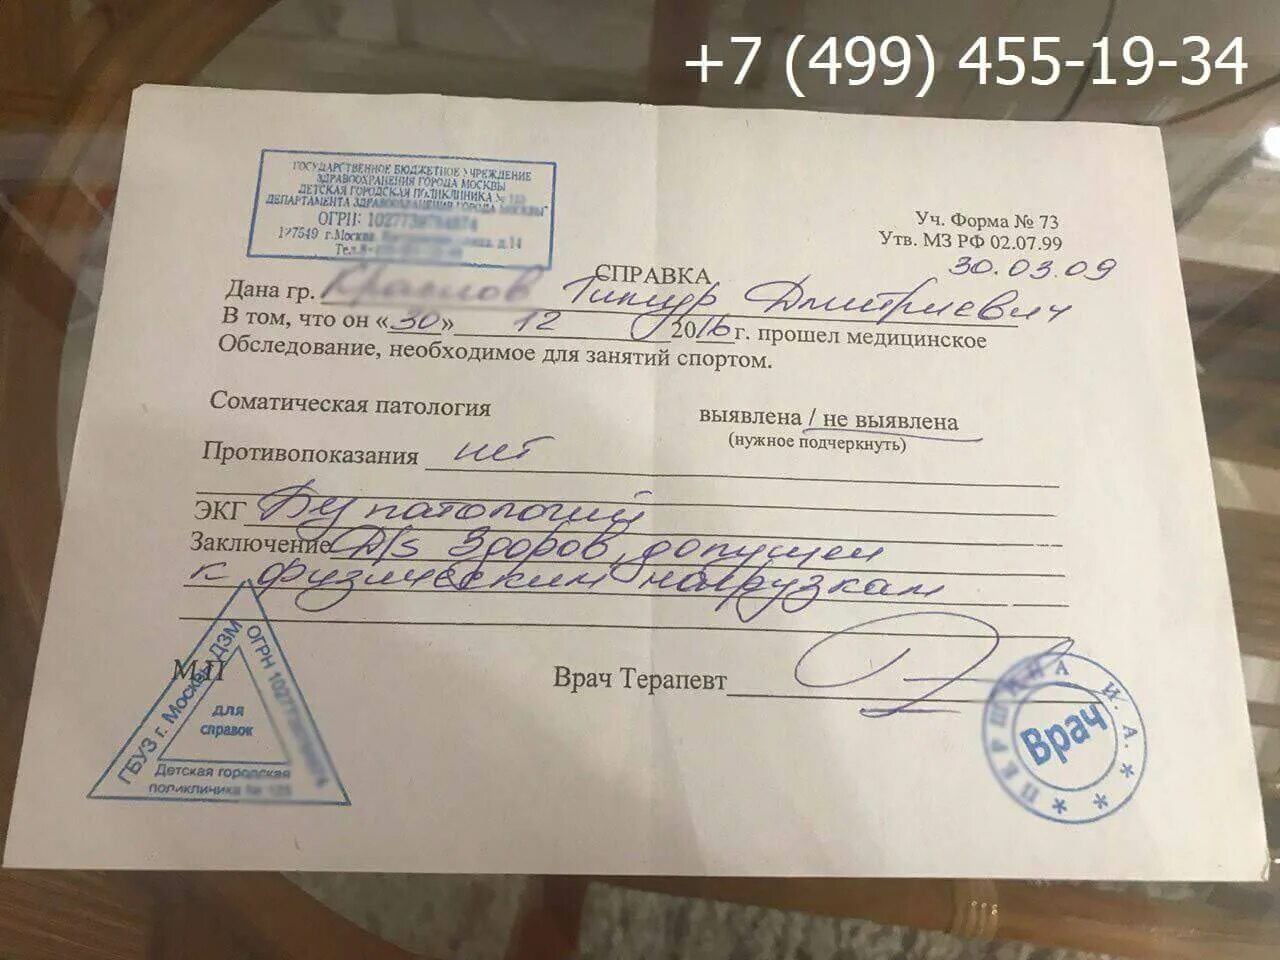 +7 (499) 455-19-34
ГОСУДАРСТВЕННОЕ БЮДЖЕТНОЕ УЧРЕЖДЕНИЕ
ЗДРАВООХРАНЕНИЯ ГОРОДА МОСКВЫ
ДЕТСКАЯ ГОРОДСКАЯ ПОЛИКЛИНИКА №
ДЕПАРТАМЕНТА ЗДРАВООХРАНЕНИЯ ГОРОДА МОСКВЫ"
ОГРН:
127549 г.Москва д.14
Тел.8-
Уч. Форма № 73
Утв. МЗ РФ 02.07.99
30.03.09
СПРАВКА
Дана гр. Тимур Дмитриевич
В том, что он «30» 12 2016 г. прошел медицинское
Обследование, необходимое для занятий спортом.
Соматическая патология выявлена / не выявлена
(нужное подчеркнуть)
Противопоказания нет
ЭКГ Без патологий
Заключение D/s Здоров, допущен
к физическим нагрузкам
М.П Врач Терапевт
ГБУЗ г. Москвы ДЗМ
ОГРН
для
справок
Детская городская
поликлиника №
ПЕРШИНА И. А. **
Врач